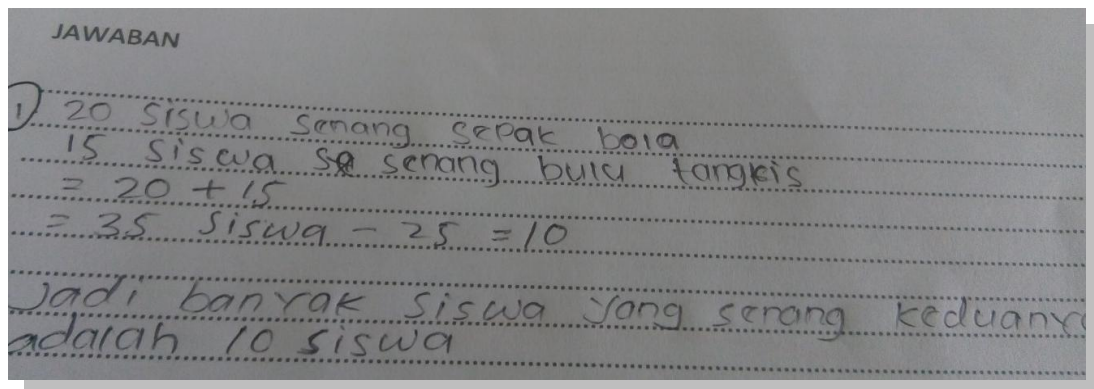 JAWABAN
1) 20 siswa senang sepak bola
15 siswa se senang bulu tangkis
= 20 + 15
= 35 siswa - 25 = 10
Jadi banyak siswa yang senang keduanya
adalah 10 siswa